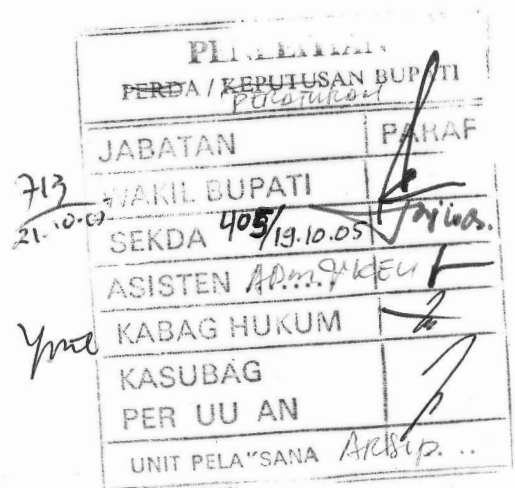 PERDA / KEPUTUSAN BUPATI
PERATURAN
JABATAN PARAF
713 WAKIL BUPATI
21.10.05
SEKDA 405/19.10.05
ASISTEN ADM. & KEU
KABAG HUKUM
KASUBAG
PER UU AN
UNIT PELA"SANA Arsip...